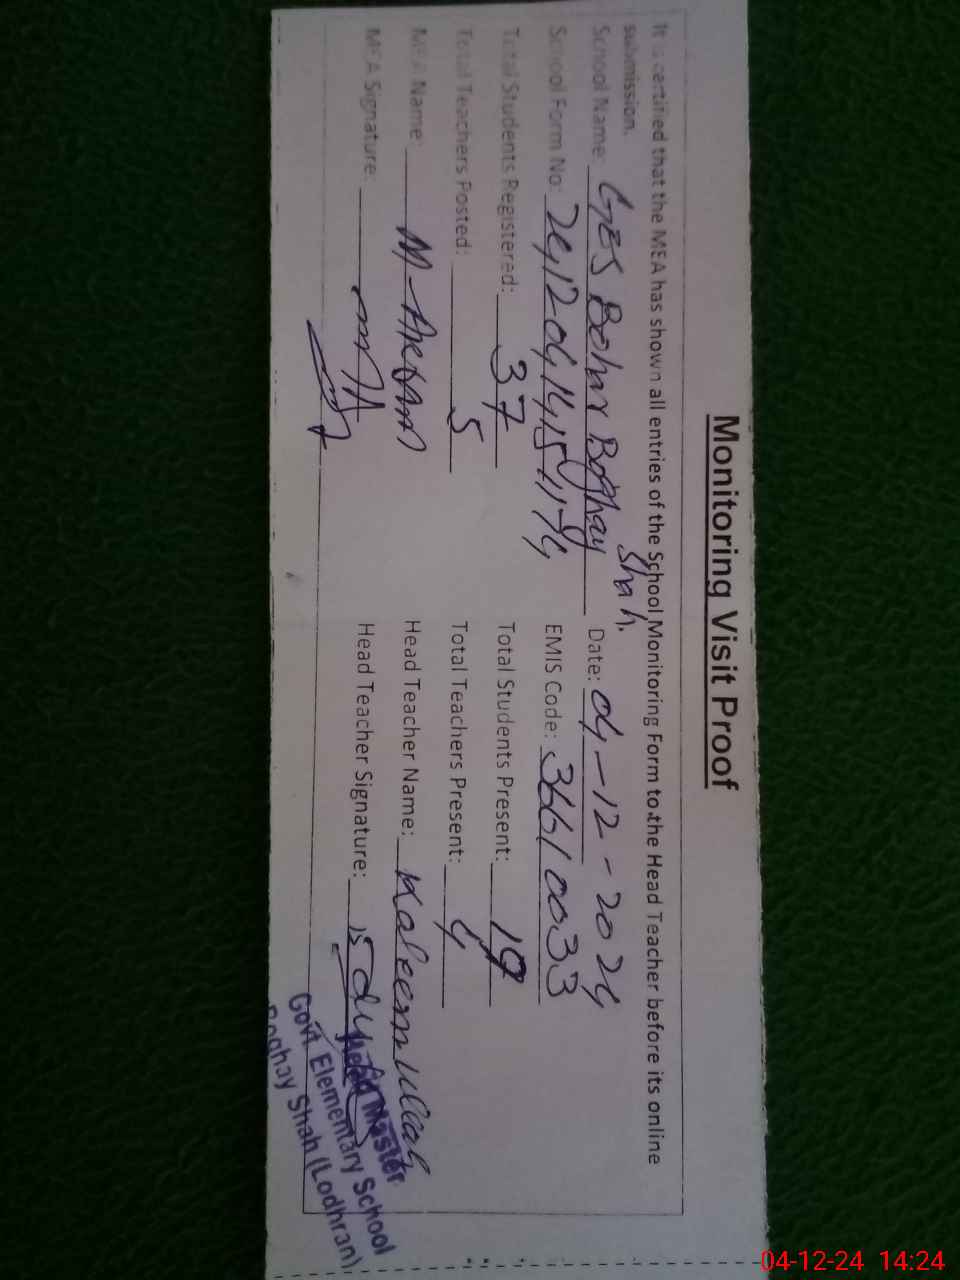 Monitoring Visit Proof
It is certified that the MEA has shown all entries of the School Monitoring Form to the Head Teacher before its online
submission.
School Name: GES Bohar Boghay Shah. Date: 04-12-2024
School Form No: EMIS Code: 36610033
Total Students Registered: 37 Total Students Present: 19
Total Teachers Posted: 5 Total Teachers Present: 4
MEA Name: M-Akram Head Teacher Name: Kaleem ullah
MEA Signature: Head Teacher Signature:
Head Master
Govt. Elementary School
Boghay Shah (Lodhran)
04-12-24 14:24